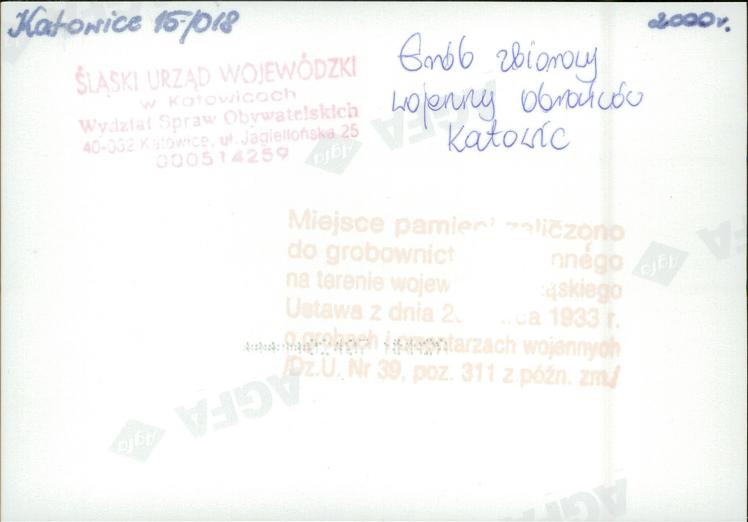 Katowice 15/018
2000 r.
ŚLĄSKI URZĄD WOJEWÓDZKI
w Katowicach
Wydział Spraw Obywatelskich
40-032 Katowice, ul. Jagiellońska 25
000514259
Grób zbiorowy
wojenny obrońców
Katowic
Miejsce pamięci zaliczono
do grobownict nnego
na terenie wojew ąskiego
Ustawa z dnia 2 ca 1933 r.
o grobach i cmentarzach wojennych
/Dz.U. Nr 39, poz. 311 z późn. zm./
Agfa
AGFA
Agfa
AGFA
Agfa
AGFA